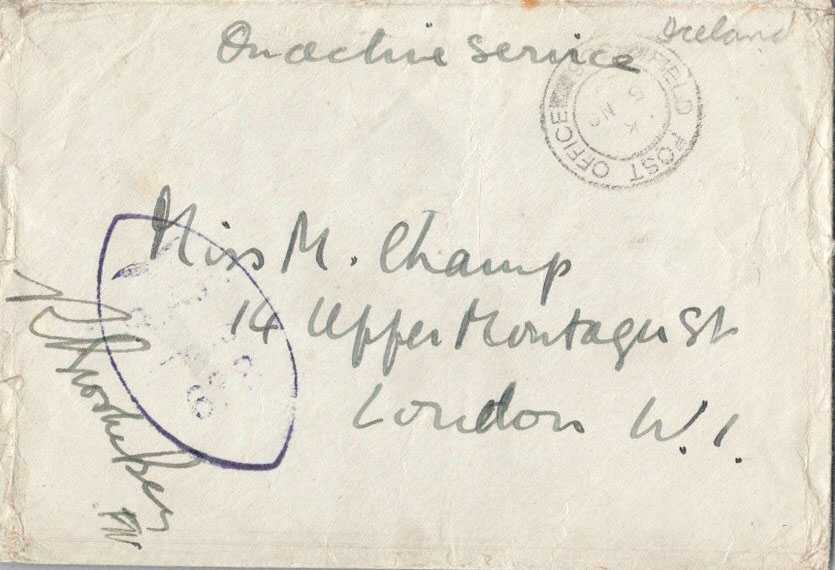 On active service
Iceland
FIELD POST OFFICE
Miss M. Champ
14 Upper Montagu St
London W.1.